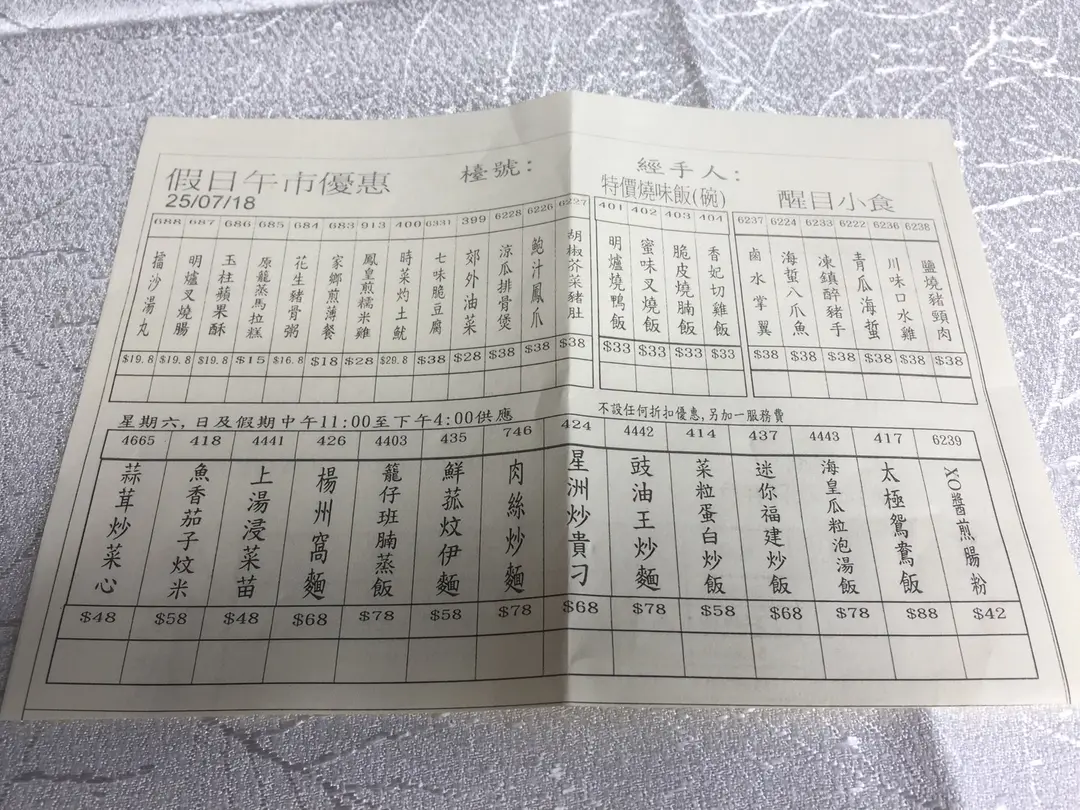 假日午市優惠 檯號: 經手人:
25/07/18 特價燒味飯(碗) 醒目小食
688 687 686 685 684 683 913 400 6331 399 6228 6226 6227 401 402 403 404 6237 6224 6233 6222 6236 6238
擂沙湯丸
明爐叉燒腸
玉柱蘋果酥
原籠蒸馬拉糕
花生豬骨粥
家鄉煎薄餐
鳳皇煎糯米雞
時菜灼土魷
七味脆豆腐
郊外油菜
涼瓜排骨煲
鮑汁鳳爪
胡椒芥菜豬肚
明爐燒鴨飯
蜜味叉燒飯
脆皮燒腩飯
香妃切雞飯
鹵水掌翼
海蜇八爪魚
凍鎮醉豬手
青瓜海蜇
川味口水雞
鹽燒豬頸肉
$19.8 $19.8 $19.8 $15 $16.8 $18 $28 $29.8 $38 $28 $38 $38 $38 $33 $33 $33 $33 $38 $38 $38 $38 $38 $38
星期六,日及假期中午11:00至下午4:00供應 不設任何折扣優惠,另加一服務費
4665 418 4441 426 4403 435 746 424 4442 414 437 4443 417 6239
蒜茸炒菜心
魚香茄子炆米
上湯浸菜苗
楊州窩麵
籠仔班腩蒸飯
鮮菰炆伊麵
肉絲炒麵
星洲炒貴刁
豉油王炒麵
菜粒蛋白炒飯
迷你福建炒飯
海皇瓜粒泡湯飯
太極鴛鴦飯
XO醬煎腸粉
$48 $58 $48 $68 $78 $58 $78 $68 $78 $58 $68 $78 $88 $42